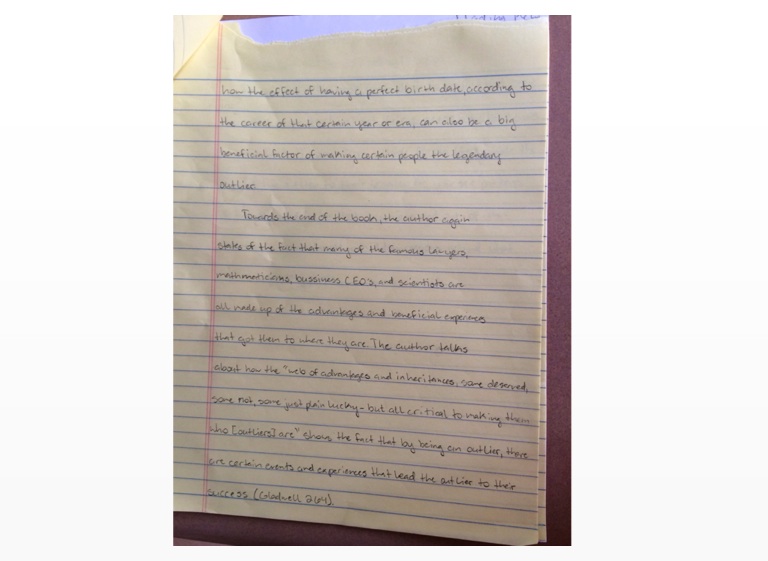 how the effect of having a perfect birth date, according to
the career of that certain year or era, can also be a big
beneficial factor of making certain people the legendary
outlier.
Towards the end of the book, the author again
states of the fact that many of the famous lawyers,
mathmaticians, bussiness CEO's, and scientists are
all made up of the advantages and beneficial experiences
that got them to where they are. The author talks
about how the "web of advantages and inheritances, some deserved,
some not, some just plain lucky - but all critical to making them
who [outliers] are" shows the fact that by being an outlier, there
are certain events and experiences that lead the outlier to their
success (Gladwell 264).